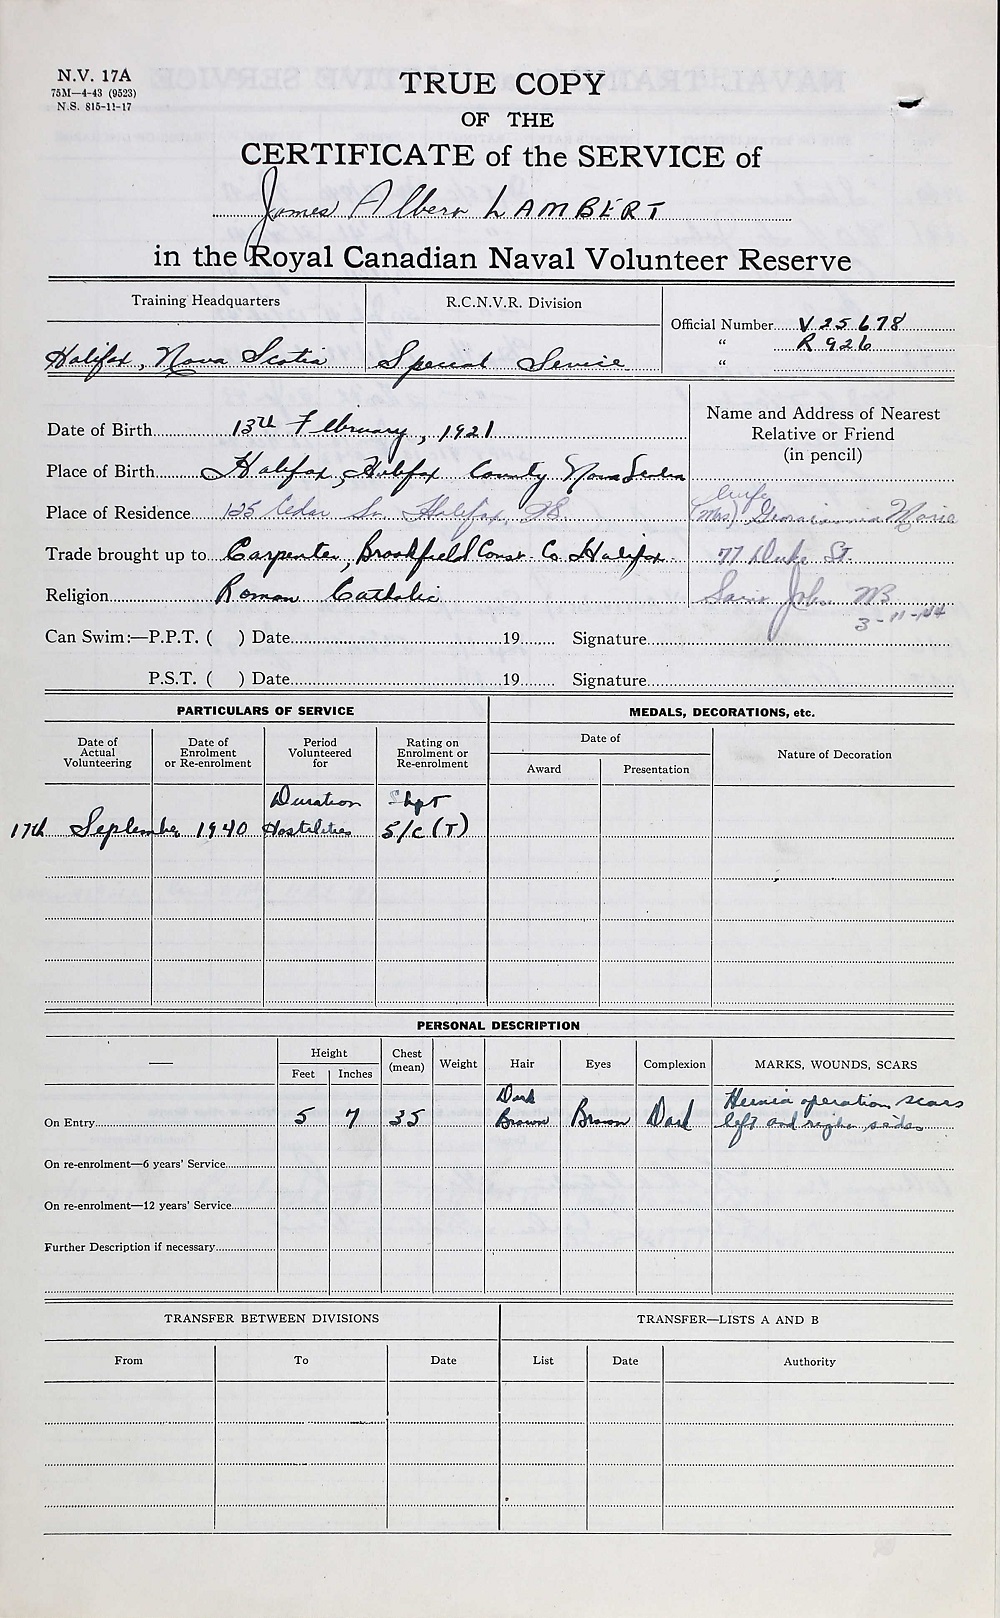 N.V. 17A
75M—4-43 (9523)
N.S. 815-11-17
TRUE COPY
OF THE
CERTIFICATE of the SERVICE of
James Albert LAMBERT
in the Royal Canadian Naval Volunteer Reserve
Training Headquarters
R.C.N.V.R. Division
Official Number V 25678
" R 926
"
Halifax, Nova Scotia
Special Service
Date of Birth 13th February, 1921
Name and Address of Nearest
Relative or Friend
(in pencil)
Place of Birth Halifax, Halifax County Nova Scotia
Place of Residence 125 Cedar St. Halifax, N.S.
wife
(Mrs) Marie
Trade brought up to Carpenter, Brookfield Const. Co Halifax
77 Duke St.
Religion Roman Catholic
Saint John NB
3-11-44
Can Swim:—P.P.T. ( ) Date 19 Signature
P.S.T. ( ) Date 19 Signature
PARTICULARS OF SERVICE
MEDALS, DECORATIONS, etc.
Date of
Actual
Volunteering
Date of
Enrolment
or Re-enrolment
Period
Volunteered
for
Rating on
Enrolment or
Re-enrolment
Date of
Award
Presentation
Nature of Decoration
Duration
Shpt
17th September 1940 Hostilities S/C (T)
PERSONAL DESCRIPTION
—
Height
Feet
Inches
Chest
(mean)
Weight
Hair
Eyes
Complexion
MARKS, WOUNDS, SCARS
On Entry 5 7 35 Dark Brown Brown Dark
Hernia operation scars
left and right sides
On re-enrolment—6 years' Service
On re-enrolment—12 years' Service
Further Description if necessary
TRANSFER BETWEEN DIVISIONS
TRANSFER—LISTS A AND B
From
To
Date
List
Date
Authority